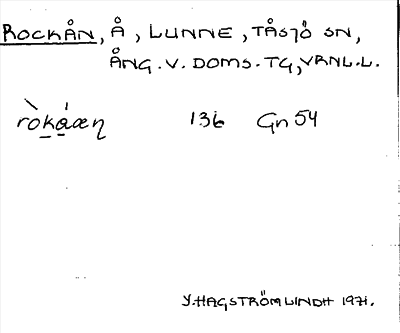 ROCKÅN, Å, LUNNE, TÅSJÖ SN,
ÅNG. V. DOMS. TG, VRNL.L.
ròkáæn 136 Gn 54
Y. HAGSTRÖM LINDH 1971.